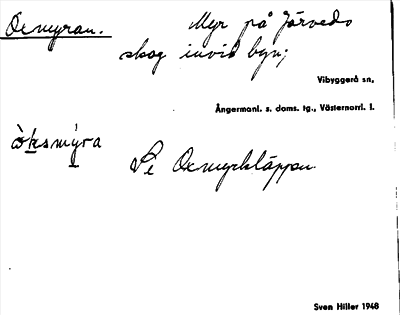 Oxmyran. Myr på Järveds
skog invid byn;
Vibyggerå sn,
Ångermanl. s. doms. tg., Västernorrl. l.
òksmy̆ra
Se Oxmyrkläppen.
Sven Hiller 1948